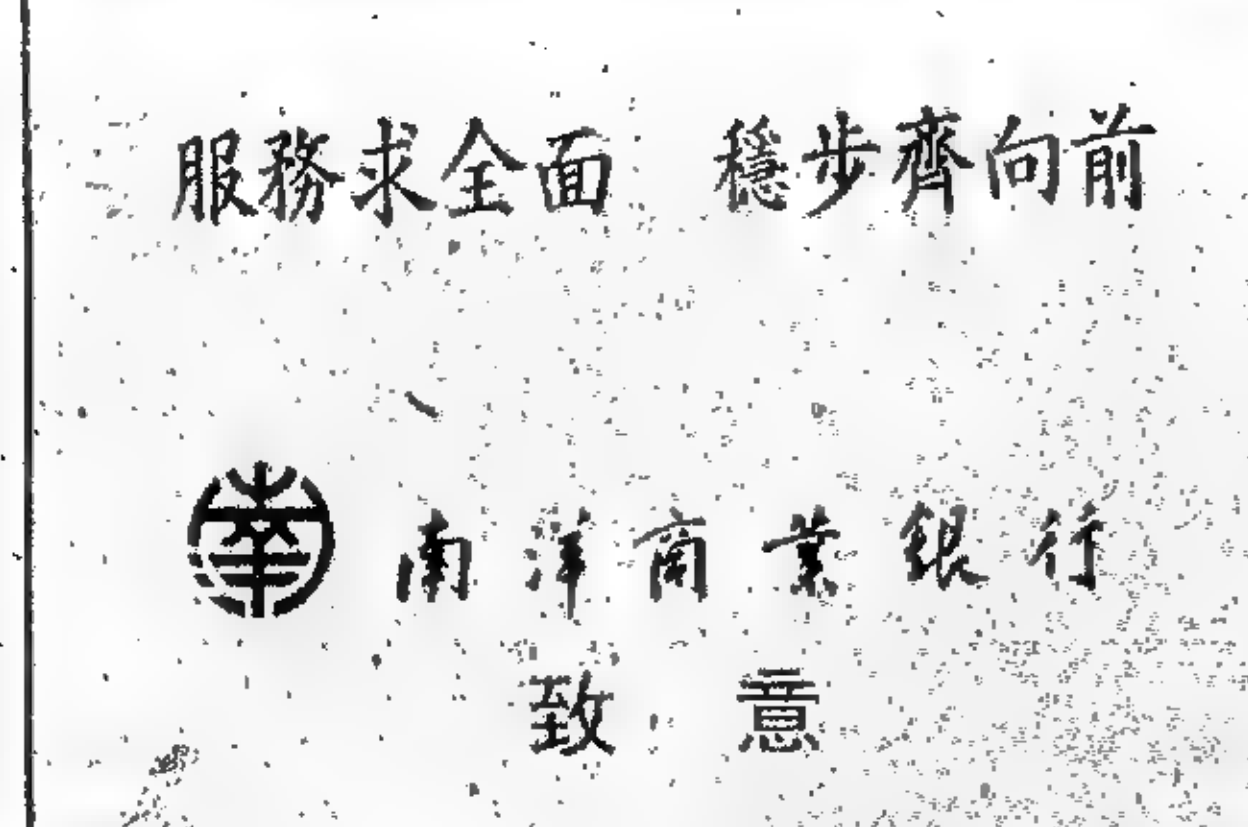 服務求全面 穩步齊向前
南洋商業銀行
致意